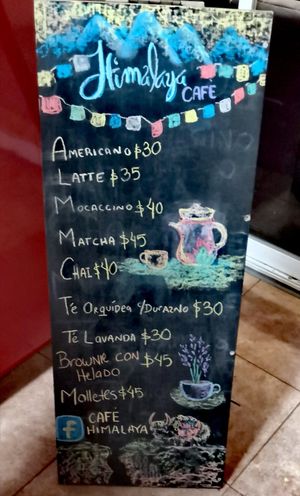 Himalaya
CAFE
AMERICANO $30
LATTE $35
MOCACCINO $40
MATCHA $45
CHAI $40
TÉ ORQUÍDEA C/DURAZNO $30
TÉ LAVANDA $30
BROWNIE CON $45
HELADO
MOLLETES $45
f CAFÉ
HIMALAYA